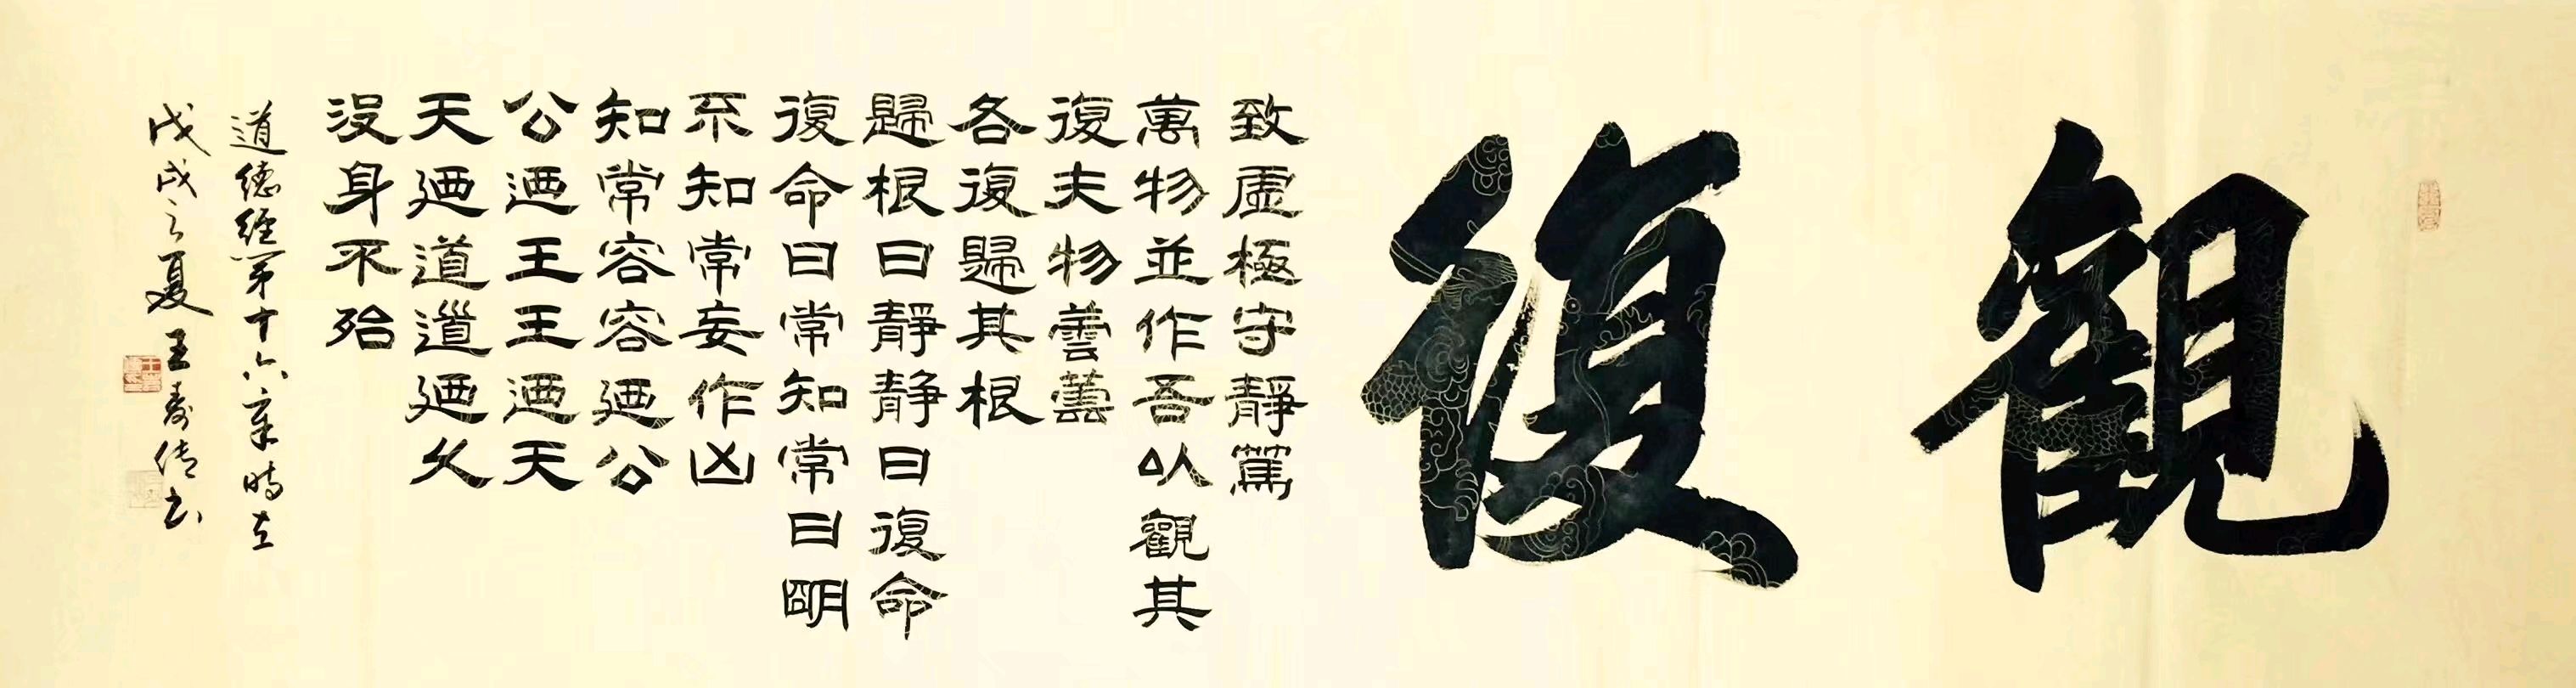 觀復
致虛極守靜篤
萬物並作吾以觀其
復夫物蕓蕓
各復歸其根
歸根曰靜靜曰復命
復命曰常知常曰明
不知常妄作凶
知常容容廼公
公迺王王迺天
天廼道道廼久
沒身不殆
道德經第十六章時在
戊戌之夏王壽信書